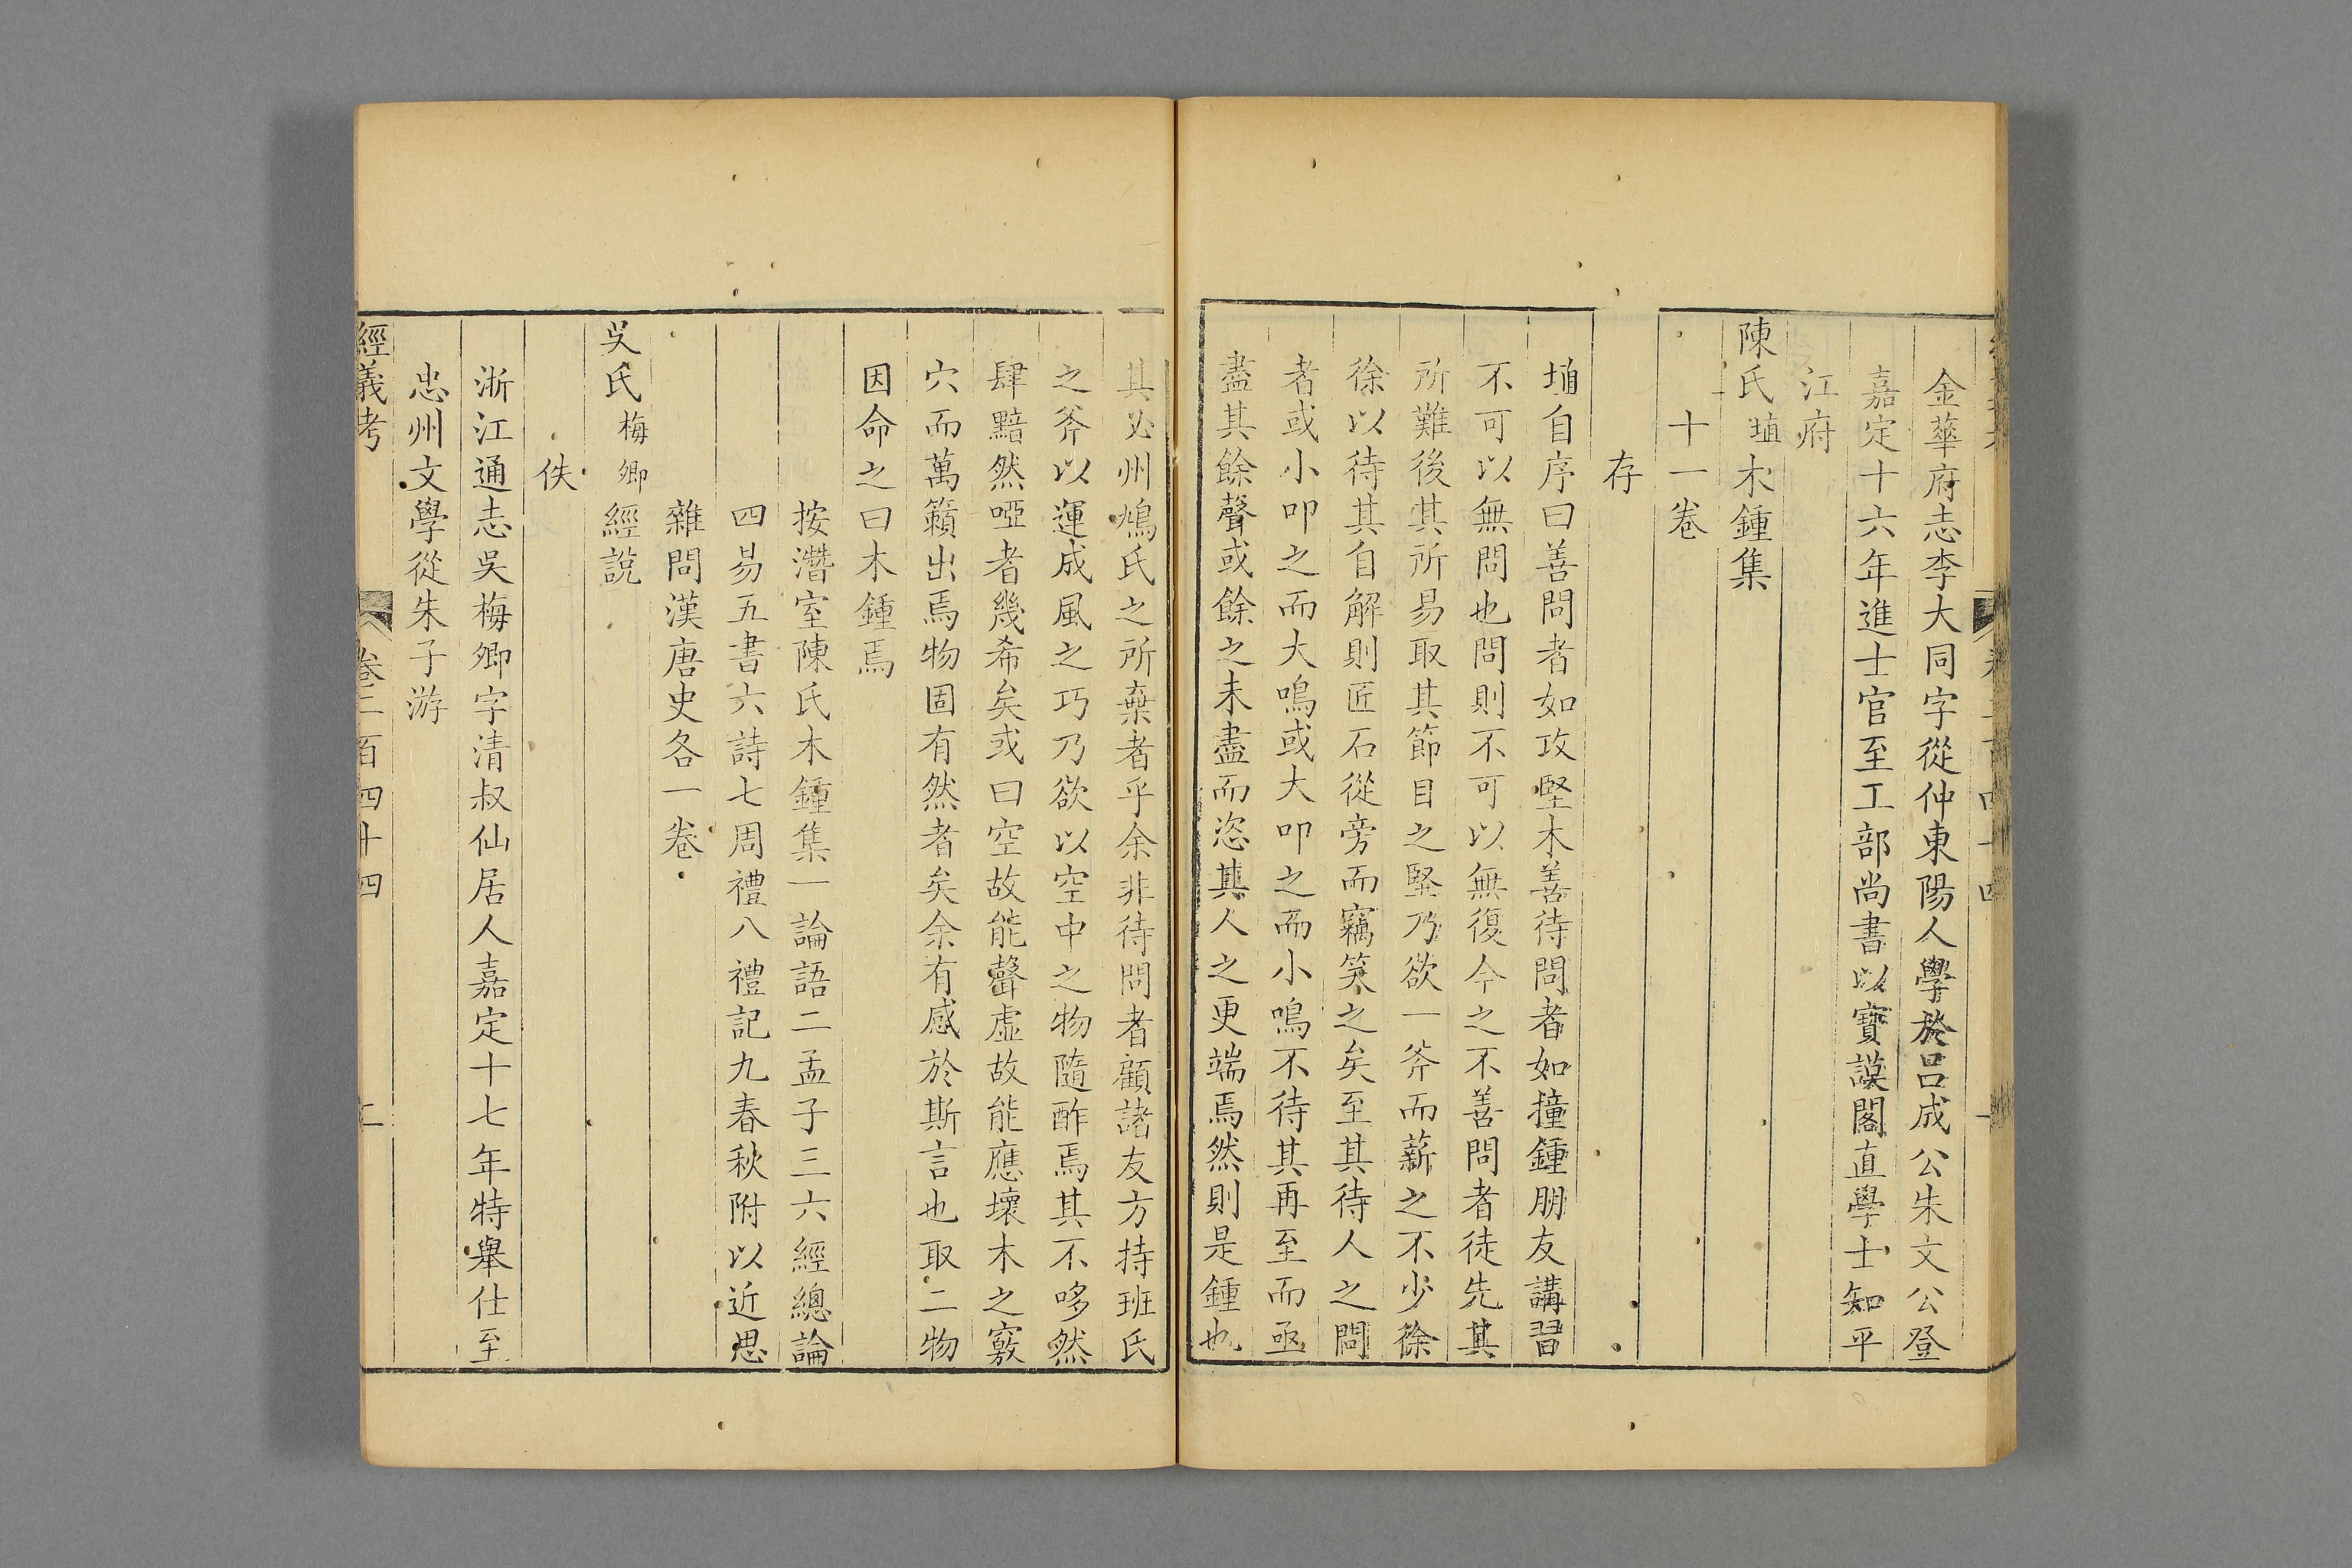 金華府志李大同字從仲東陽人學於呂成公朱文公登
嘉定十六年進士官至工部尚書以寶謨閣直學士知平
江府
陳氏埴木鍾集
十一卷
存
埴自序曰善問者如攻堅木善待問者如撞鍾朋友講習
不可以無問也問則不可以無復今之不善問者徒先其
所難後其所易取其節目之堅乃欲一斧而薪之不少徐
徐以待其自解則匠石從旁而竊笑之矣至其待人之問
者或小叩之而大鳴或大叩之而小鳴不待其再至而亟
盡其餘聲或餘之未盡而恣其人之更端焉然則是鍾也
其必州鳩氏之所棄者乎余非待問者顧諸友方持班氏
之斧以運成風之巧乃欲以空中之物隨酢焉其不哆然
肆黯然啞者幾希矣或曰空故能聲虛故能應壞木之竅
穴而萬籟出焉物固有然者矣余有感於斯言也取二物
因命之曰木鍾焉
按潛室陳氏木鍾集一論語二孟子三六經總論
四易五書六詩七周禮八禮記九春秋附以近思
雜問漢唐史各一卷
吳氏梅卿經說
佚
浙江通志吳梅卿字清叔仙居人嘉定十七年特舉仕至
忠州文學從朱子游
經義考 卷二百四十四 二